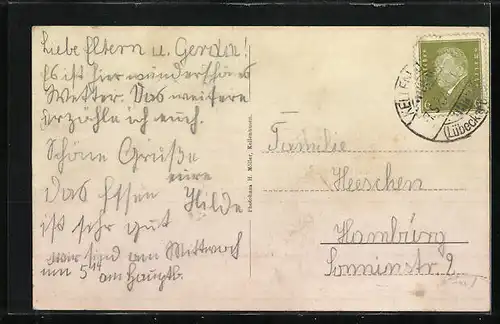 Liebe Eltern u. Gerda!
Es ist hier wunderschönes
Wetter. Das weitere
erzähle ich euch.
Schöne Grüße
eure
Hilde
Das Essen
ist sehr gut
wir sind am Mittwoch
um 5 am Hauptb.
H. Möller, Kellenhusen.
Familie
Heeschen
Hamburg
Sonninstr. 2
KELLEN
(Lübeck